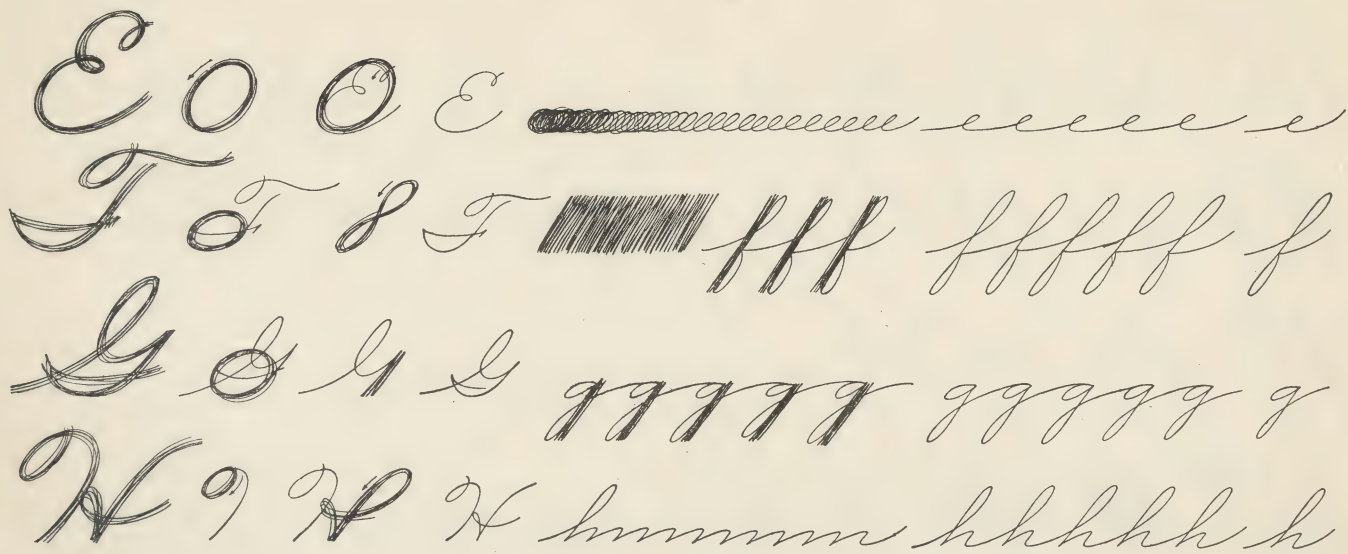 E E E eeeee e
F F F fff fffff f
G G G G ggggg ggggg g
H H H h hhhhh h